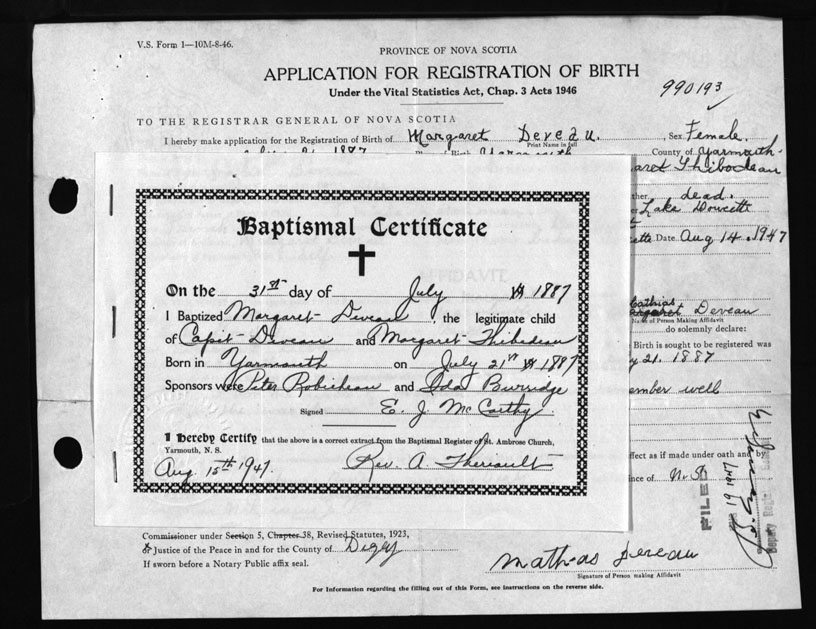 V.S. Form 1—10M-8-46.
PROVINCE OF NOVA SCOTIA
APPLICATION FOR REGISTRATION OF BIRTH
Under the Vital Statistics Act, Chap. 3 Acts 1946
990193
TO THE REGISTRAR GENERAL OF NOVA SCOTIA
I hereby make application for the Registration of Birth of Margaret Deveau, Sex Female
Print Name in full
1887 Yarmouth County of Yarmouth
aret Thibodeau
ther dead.
Lake Doucette
Date Aug 14. 1947
Baptismal Certificate
On the 31st day of July 1887
I Baptized Margaret Deveau the legitimate child
of Capit Deveau and Margaret Thibedeau
Born in Yarmouth on July 21st 1887
Sponsors were Peter Robicheau and Ida Burridge
Signed E. J. McCarthy
I Hereby Certify that the above is a correct extract from the Baptismal Register of St. Ambrose Church,
Yarmouth, N. S.
Aug. 15th 1947. Rev. A. Theriault
Mathias
Deveau
Name of Person Making Affidavit
do solemnly declare:
Birth is sought to be registered was
y 21. 1887
ember well
ffect as if made under oath and by
ince of N.S.
FILED
19 1947
Deputy Regis
Commissioner under Section 5, Chapter 38, Revised Statutes, 1923,
or Justice of the Peace in and for the County of Digby
If sworn before a Notary Public affix seal.
Mathias Deveau
Signature of Person making Affidavit
For Information regarding the filling out of this Form, see instructions on the reverse side.